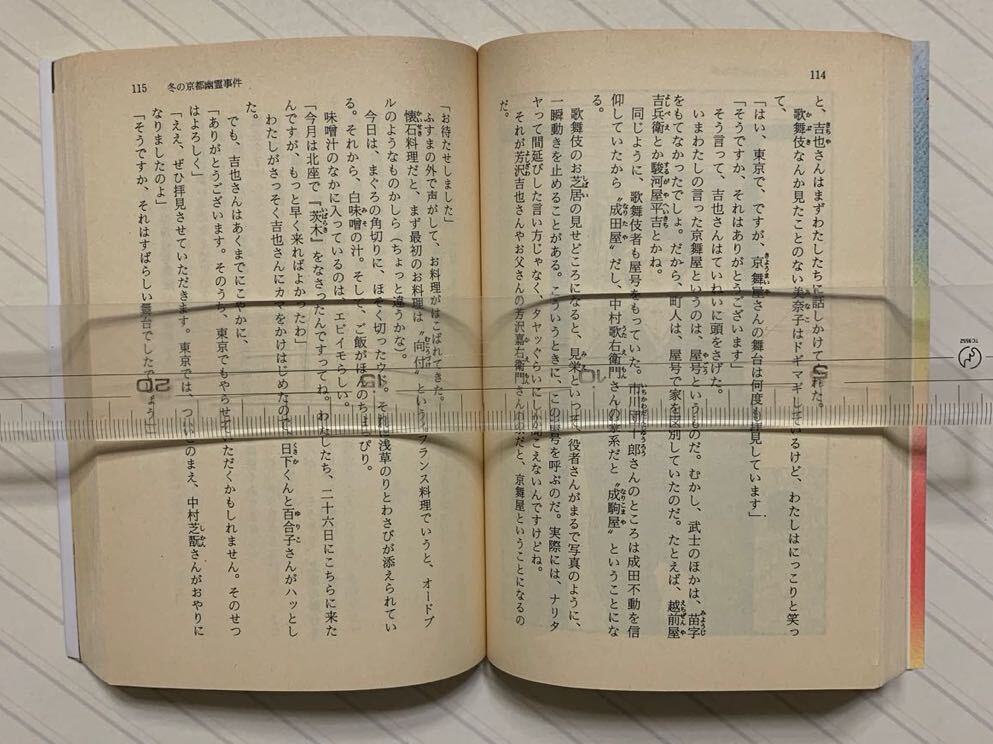 114
と、吉也さんはまずわたしたちに話しかけてくれた。
歌舞伎なんか見たことのない美奈子はドギマギしているけど、わたしはにっこりと笑っ
て、
「はい、東京で、ですが、京舞屋さんの舞台は何度も拝見しています」
「そうですか、それはありがとうございます」
そう言って、吉也さんはていねいに頭をさげた。
いまわたしの言った京舞屋というのは、屋号というものだ。むかし、武士のほかは、苗字
をもてなかったでしょ。だから、町人は、屋号で家を区別していたのだ。たとえば、越前屋
吉兵衛とか駿河屋平吉とかね。
同じように、歌舞伎者も屋号をもっていた。市川団十郎さんのところは成田不動を信
仰していたから〝成田屋〟だし、中村歌右衛門さんの家系だと〝成駒屋〟ということにな
る。
歌舞伎のお芝居の見せどころになると、見栄といって、役者さんがまるで写真のように、
一瞬動きを止めることがある。こういうときに、この屋号を呼ぶのだ。実際には、ナリタ
ヤって間延びした言い方じゃなく、タヤッぐらいにしか聞こえないんですけどね。
それが芳沢吉也さんやお父さんの芳沢嘉右衛門さんのばあいだと、京舞屋ということになるの
だ。
115 冬の京都幽霊事件
「お待たせしました」
ふすまの外で声がして、お料理がはこばれてきた。
懐石料理だと、まず最初のお料理は〝向付〟という。フランス料理でいうと、オードブ
ルのようなものかしら(ちょっと違うかな)。
今日は、まぐろの角切りに、ほそく切ったウド。それに浅草のりとわさびが添えられてい
る。それから、白味噌の汁。そして、ご飯がほんのちょっぴり。
味噌汁のなかに入っているのは、エビイモらしい。
「今月は北座で『茨木』をなさったんですってね。わたしたち、二十六日にこちらに来た
んですが、もっと早く来ればよかったわ」
わたしがさっそく吉也さんにカマをかけはじめたので、日下くんと百合子さんがハッとし
た。
でも、吉也さんはあくまでにこやかに、
「ありがとうございます。そのうち、東京でもやらせていただくかもしれません。そのせつ
はよろしく」
「ええ、ぜひ拝見させていただきます。東京では、ついこのまえ、中村芝翫さんがおやりに
なりましたのよ」
「そうですか、それはすばらしい舞台でしたでしょう」
5
10
15
20
TC 9552